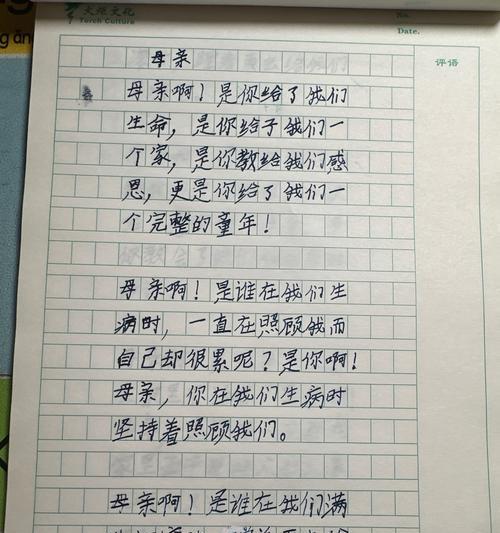 火炬文化
Torch Culture
No.
Date.
评语
母亲
母亲啊！是你给了我们
生命，是你给予我们一
个家，是你教给我们感
恩，更是你给了我们一
个完整的童年！
母亲啊！是谁在我们生
病时，一直在照顾我而
自己却很累呢？是你啊！
母亲，你在我们生病时
坚持着照顾我们。
母亲啊！是谁在我们满